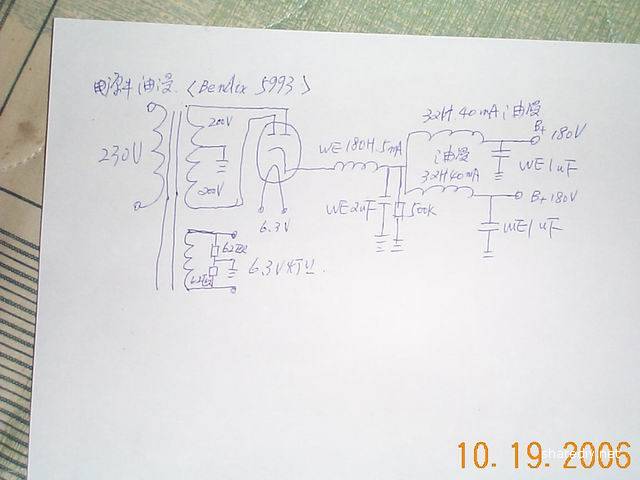 电源牛油浸 <Bendix 5993>
230V
200V
200V
6.3V
WE 180H 5mA
WE 2uF
500K
32H 40mA 油浸
B+ 180V
WE 1uF
油浸
32H 40mA
B+ 180V
WE 1uF
62Ω
62Ω
6.3V灯丝.
10.19.2006
sharediy.net